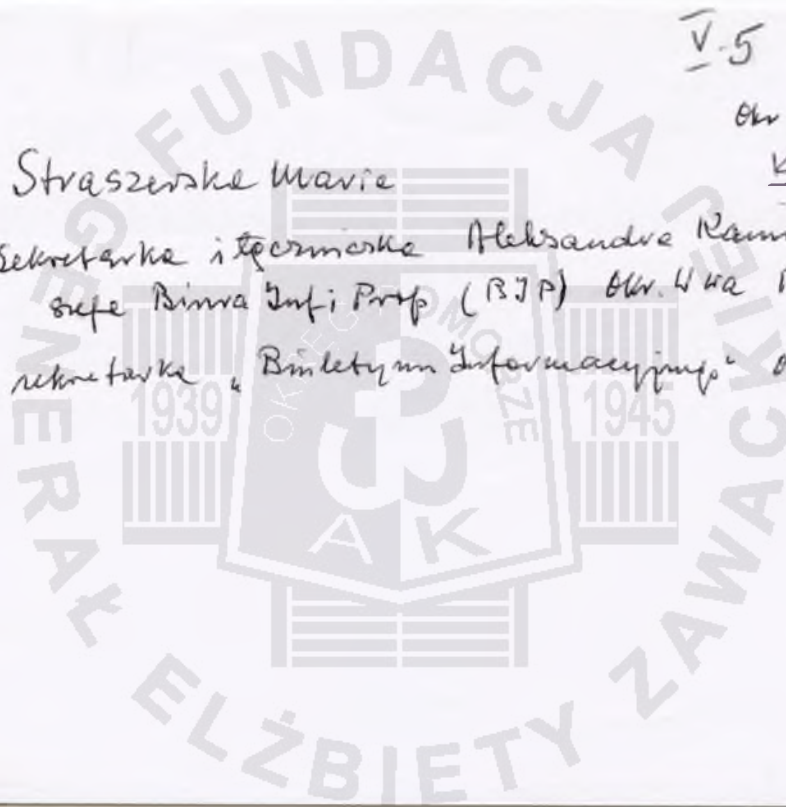 V.5
Okr
K
Straszewska Maria
Sekretarka i łączniczka Aleksandra Kami
szefa Biura Inf i Prop (BIP) Okr. W-wa
sekretarka „Biuletynu Informacyjnego"
FUNDACJA GENERAŁ ELŻBIETY ZAWACKIEJ
OKRĘG POMORZE
1939
1945
AK